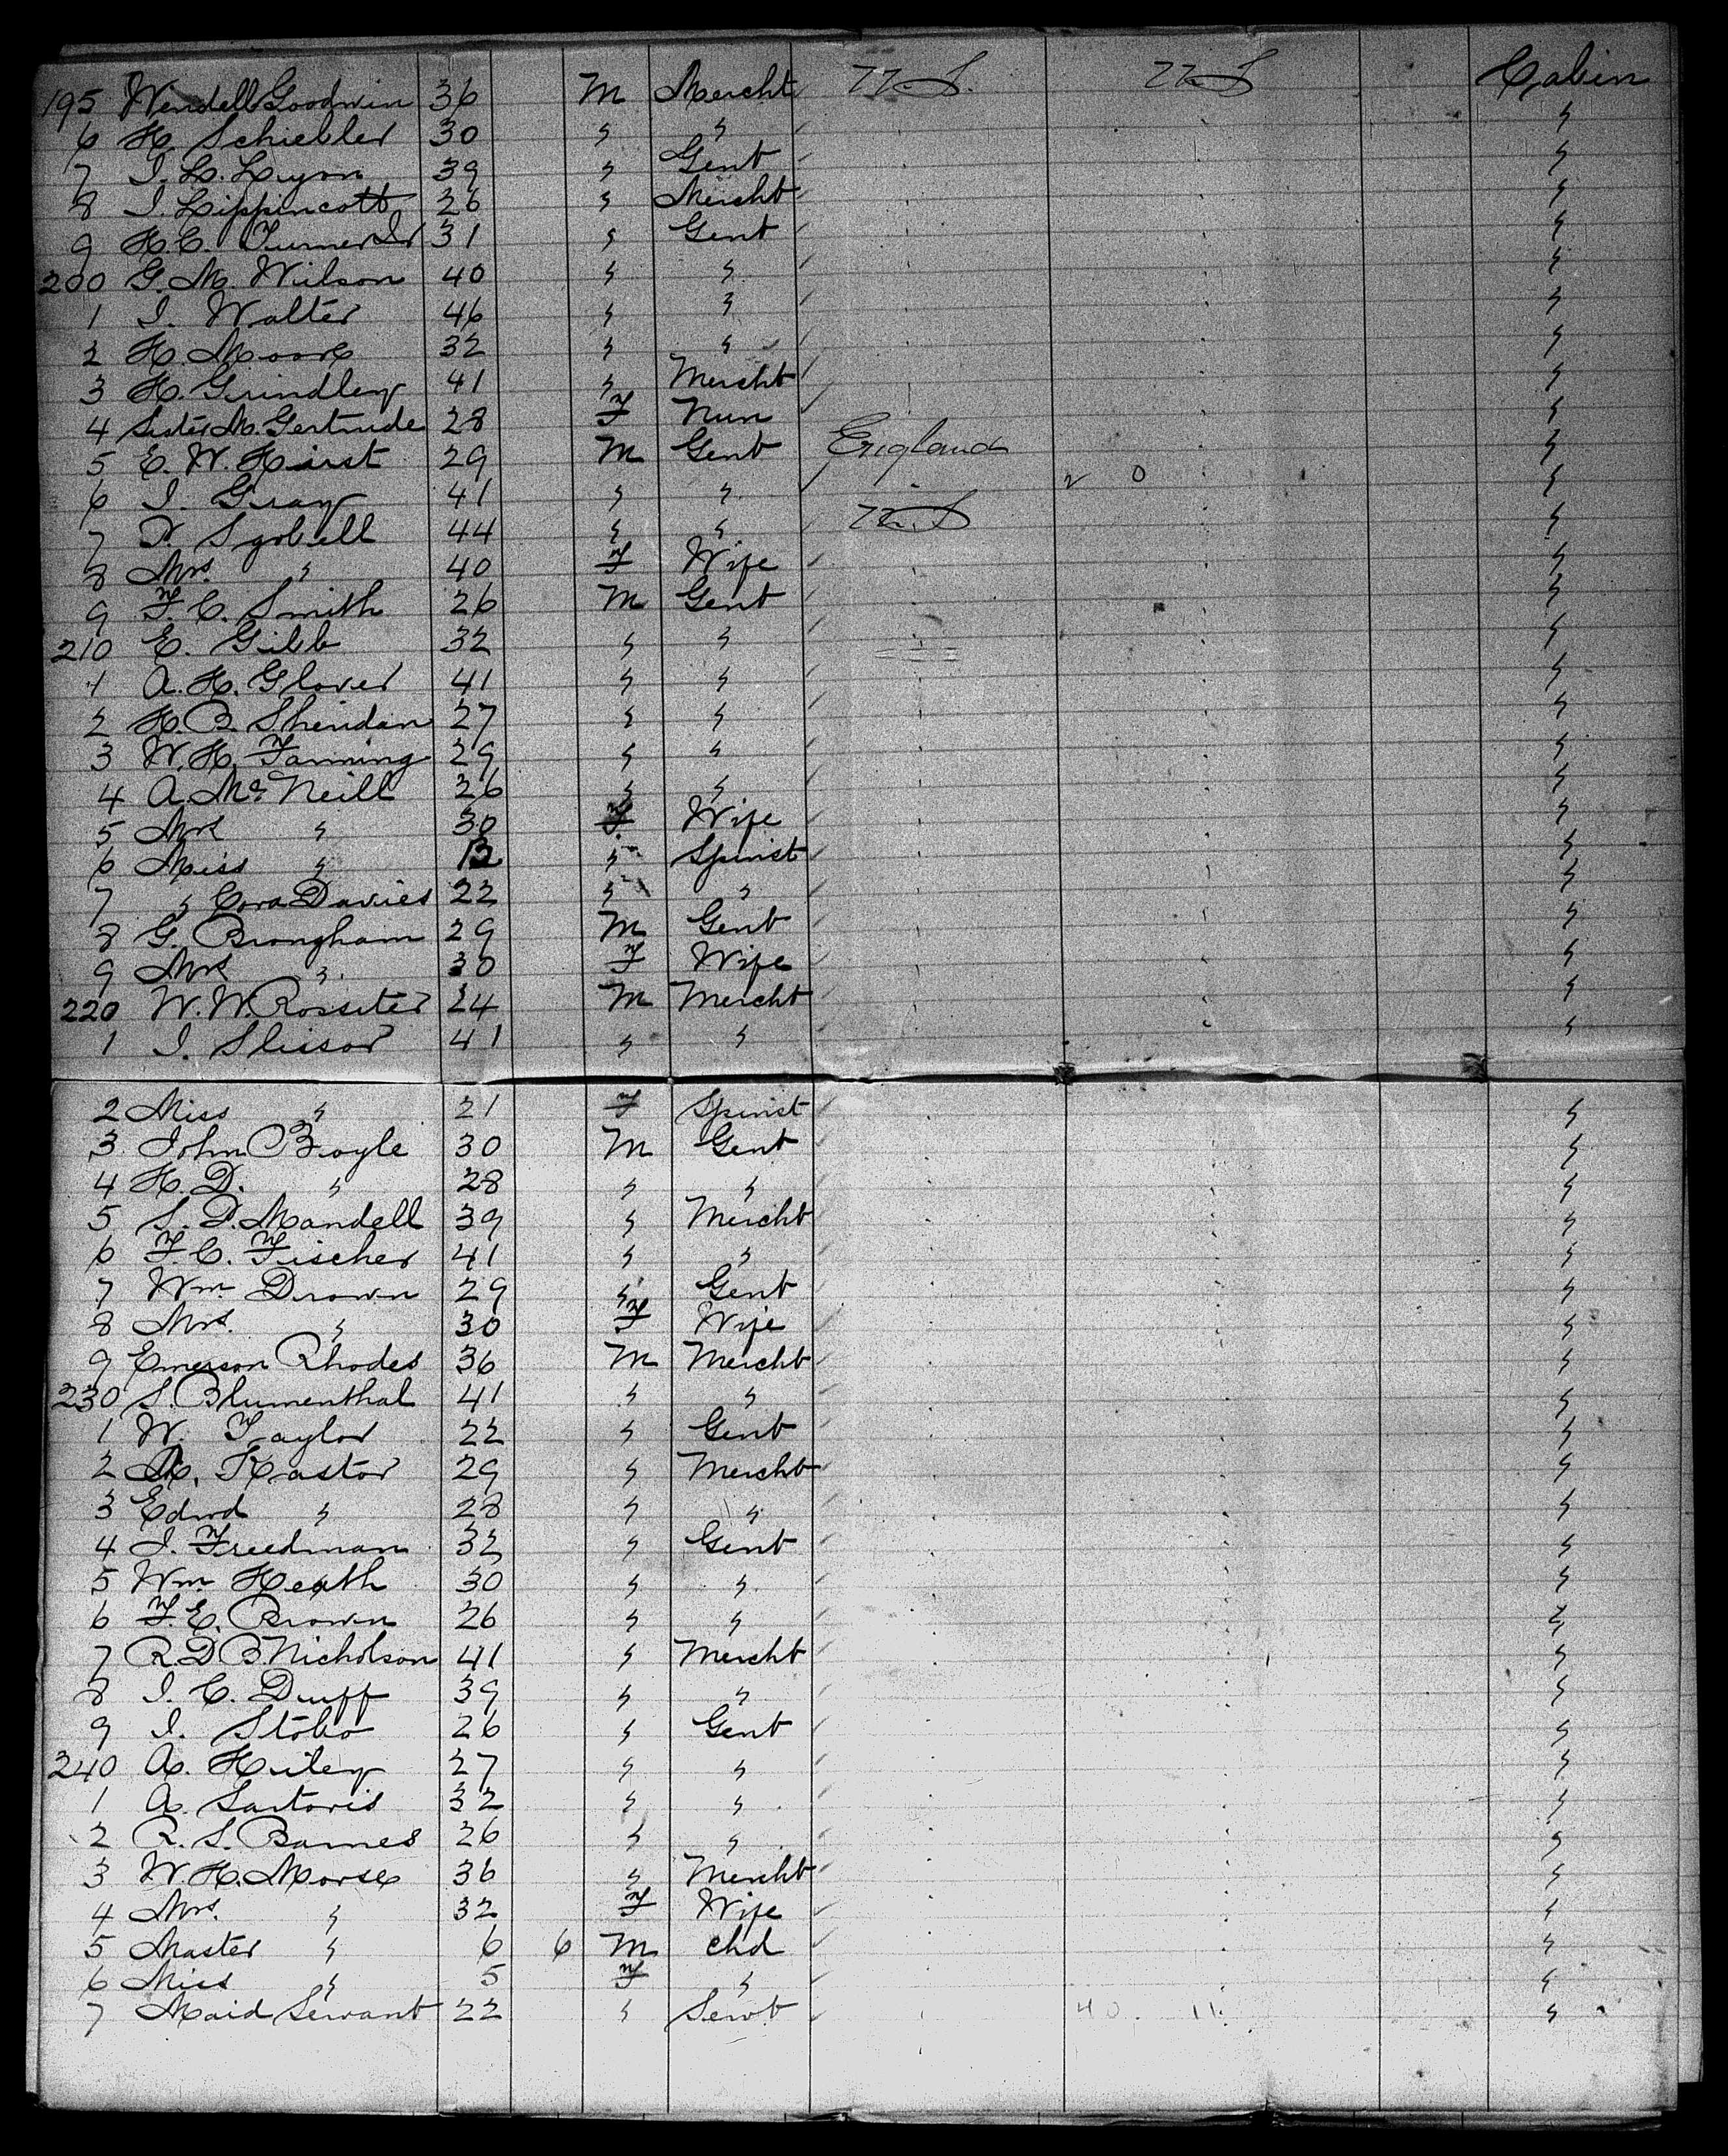 195 Wendell Goodwin 36 M Mercht U.S. U.S Cabin
6 H. Schiebler 30 " " "
7 I. L. Lyon 39 " Gent "
8 I. Lippincott 26 " Mercht "
9 H.C. Turner Jr 31 " Gent "
200 G. M. Wilson 40 " " "
1 I. Walter 46 " " "
2 H. Moore 32 " " "
3 H. Grindley 41 " Mercht "
4 Sister M. Gertrude 28 F Nun "
5 E. W. Hirst 29 M Gent England "
6 I. Gray 41 " " "
7 44 " " U.S "
8 Mrs. " 40 F Wife "
9 F. C. Smith 26 M Gent "
210 E. Gibb 32 " " "
1 A. H. Glover 41 " " "
2 H. B. Sheridan 27 " " "
3 W. H. Fanning 29 " " "
4 A. Mc Neill 26 " " "
5 Mrs " 30 F Wife "
6 Miss " " Spinst "
7 " Cora Davies 22 " " "
8 G. Brongham 29 M Gent "
9 Mrs " 30 F Wife "
220 W. W. Rossiter 24 M Mercht "
1 I. Slissor 41 " " "
2 Miss " 21 F Spinst "
3 John Boyle 30 M Gent "
4 H. D. " 28 " " "
5 S. D. Mandell 39 " Mercht "
6 F. C. Fischer 41 " " "
7 Wm Drown 29 " Gent "
8 Mrs. " 30 F Wife "
9 Emerson Rhodes 36 M Mercht "
230 S. Blumenthal 41 " " "
1 W. Taylor 22 " Gent "
2 Kastor 29 " Mercht "
3 Edwd " 28 " " "
4 I. Freedman 32 " Gent "
5 Wm Heath 30 " " "
6 F. E. Brown 26 " " "
7 R. D B. Nicholson 41 " Mercht "
8 I. C. Duff 39 " " "
9 I. Stobo 26 " Gent "
240 A. Huley 27 " " "
1 A. Sartoris 32 " " "
2 R. S. Barnes 26 " " "
3 W. H. Morse 36 " Mercht "
4 Mrs. " 32 F Wife "
5 Master " 6 6 M chd "
6 Miss " 5 F " "
7 Maid Servant 22 " Servt 40 11 "